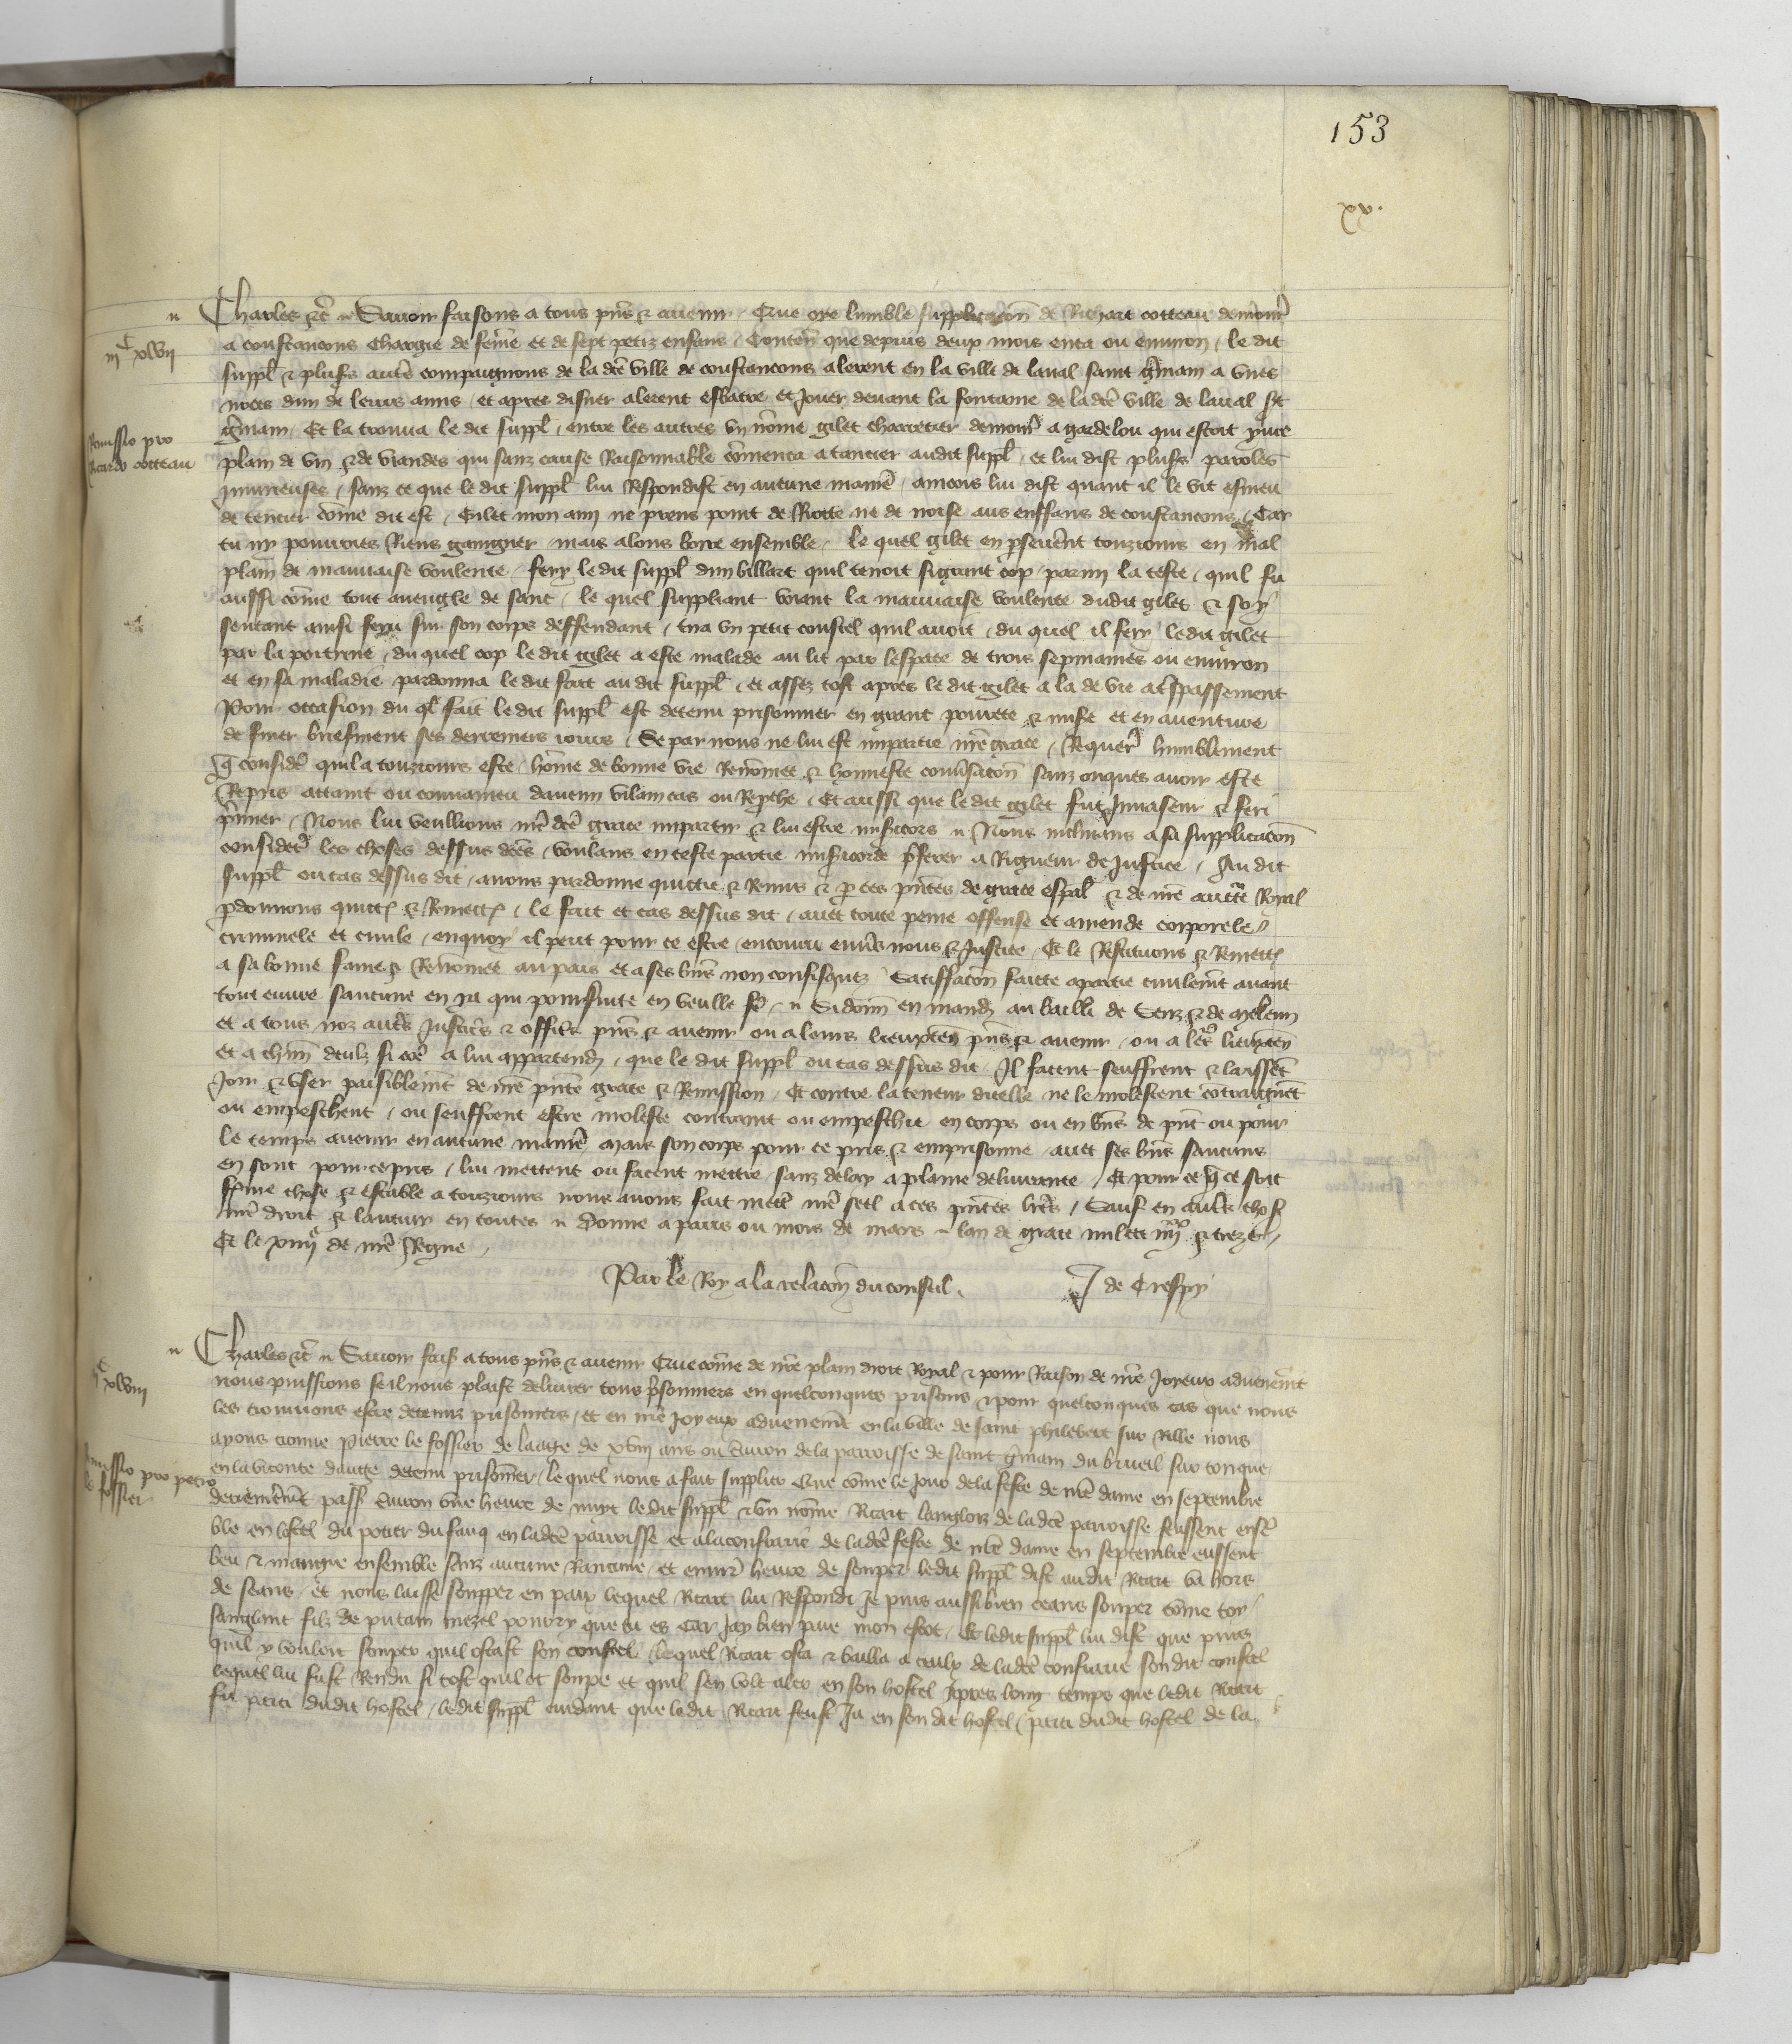 153
xv.
Charles etc. Savoir faisons a tous pns & avenir Que oye lumble supplicacon de Richart cotteau demour
iijC xlvii
a coustancons chargie de feme et de sept petiz enfans Conten que depuis deux mois enca ou environ le dit
suppl & plusrs autres compaignons de la dce ville de coustancons alerent en la ville de laval saint gmain a unes
noces dun de leurs amis et apres disner alerent esbatre et Jouer devant la fontaine de la dce ville de laval st
gmain Et la trouva le dit suppl entre les autres un nome gilet charretier demour a gardelou qui estoit yvre
Remissio pro Ricardo cotteau
plain de vin & de viandes qui sanz cause Raisonnable comenca a tancier audit suppl et lui dist plusrs paroles
Injurieuses sanz ce que le dit suppl lui Respondist en aucune maniere aincois lui dist quant il le vit esmeu
de tencier come dit est Gilet mon ami ne prens point de Riotte ne de noise aus enffans de coustancons Car
tu ny pourroies Riens gaingner mais alons boire ensemble le quel gilet en pseverent touziours en mal
plain de mauvaise voulente fery le dit suppl dun billart quil tenoit si grant cop parmi la teste quil fu
aussi come tout aveugle de sanc le quel suppliant voiant la mauvaise voulente dudit gilet & soy
sentant ainsi feru sur son corps deffendant tira un petit coustel quil avoit du quel il fery ledit gilet
par la poitrine du quel cop le dit gilet a este malade au lit par lespace de trois sepmaines ou environ
et en sa maladie pardonna le dit fait au dit suppl et assez tost apres le dit gilet ala de vie a tspassement
Pour occasion du ql fait le dit suppl est detenu prisonnier en grant povrete & mise et en aventure
de finer briefment ses derreniers jours Se par nous ne lui est impartie nre grace Requer humblement
q consider quil a touziours este home de bonne vie Renomee & honneste conversacon sanz onques avoir este
Repris attaint ou convaincu daucun vilain cas ou Reproche Et aussi que le dit gilet fut Invaseur & feri
pimier Nous lui veullions nre dce grace impartir & lui estre misicors Nous inclinans a sa supplicacon
consider les choses dessus dces voulans en ceste partie misicorde pferer a Rigueur de Justice Au dit
suppl ou cas dessus dit avons pardonne quictie & Remis & p ces pntes de grace espal & de nre auctte Royal
pdonnons quitt & Remett le fait et cas dessus dit avec toute peine offense et amende corporele
criminele et civile enquoy il peut pour ce estre encouru envs nous & Justice Et le Restituons & Remett
a sa bonne fame & Renomee au pais et a ses biens non confisquez Satiffacon faitte a partie civilemt avant
tout euvre saucune en ya qui poursuite en veulle fe Si donn en mand au bailli de Senz & de meleun
et a tous noz autrs Justicrs & officrs pns & avenir ou a leurs lieuxten pns & avenir ou a leur lieuxten
et a chun deulx si coe a lui appartend que le dit suppl ou cas dessus dit Il facent seuffrent & laissent
Joir & user paisiblemt de nre pnte grace & Remission Et contre la teneur dicelle ne le molestent contraignent
ou empeschent ou seuffrent estre moleste contraint ou empeschie en corps ou en biens de pnt ou pour
le temps avenir en aucune maniere Mais son corps pour ce pris & emprisonne avec ses biens saucuns
en sont pource pris lui mettent ou facent mettre sanz delay a plaine delivrance Et pour ce q ce soit
ferme chose & estable a touziours nous avons fait mettre nre seel a ces pntes lres Sauf en autres choses
nre droit & lautrui en toutes Donne a paris ou mois de mars lan de grace mil ccc iiijxx & treze
Et le xiiije de nre Regne
Par le Roy a la relacon du conseil. J de Crespy
Charles etc Savoir fais a tous pns & avenir Que come de nre plain droit Royal & pour Raison de nre Joyeux advenemt
C xlviii
nous puissions se il nous plaist delivrer tous prisonniers en quelconques prisons & pour quelconques cas que nous
les trouvons estre detenuz prisoniers et en nre Joyeux advenemt en la ville de saint philebert sur Rille nous
ayons trouve Pierre le fossier de laage de xviij ans ou environ de la parroisse de saint gmain du brueil sur tonque
Remissio pro petro le fossier
en la viconte dauge detenu prisonier le quel nous a fait supplier Que come le jour de la feste de nre dame en septembre
derrenieremt passe environ une heure de nuyt ledit suppl & un nome Ricart langloiz de la dce parroisse feussent ensem
ble en lostel du potier du fauq en la dce parroisse et a la confrarie de la dce feste de nre dame en septembre eussent
beu & mangie ensemble sanz aucune Rancune et environ heure de souper ledit suppl dist audit Ricart va hors
de ceans et nous laisse soupper en paix lequel Ricart lui Respondi Je puis aussi bien ceans souper come toy
sanglant filz de putain mezel pourry que tu es Car Jay bien paie mon escot Et ledit suppl lui dist que puis
quil y vouloit souper quil ostast son coustel lequel Ricart osta & bailla a ceulx de la dce confrarie son dit coustel
lequel lui fust Rendu si tost quil ot soupe et quil sen volt aler en son hostel Apres long temps que ledit Ricart
fu parti dudit hostel ledit suppl cuidant que le dit Ricart feust Ja en son dit hostel parti dudit hostel de la